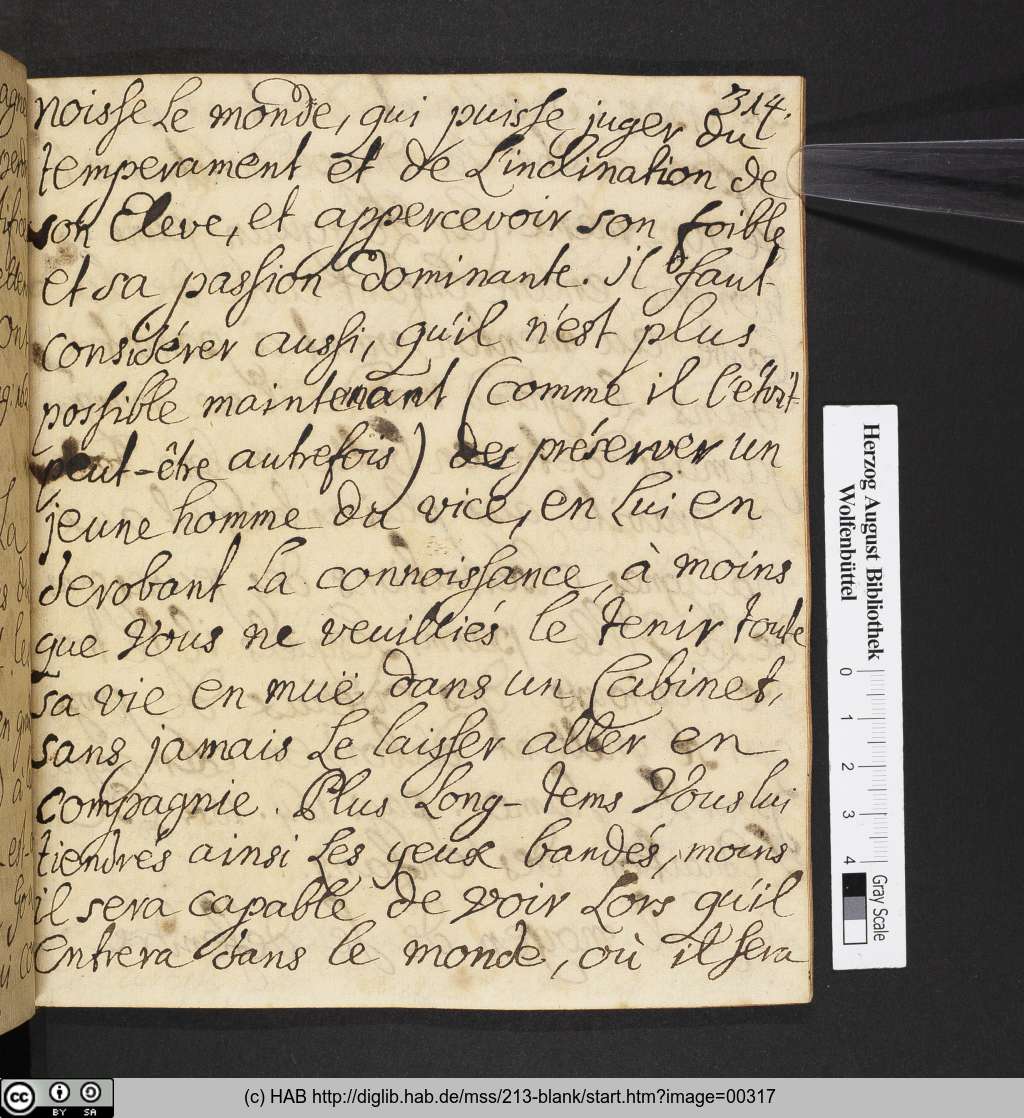 314.
noisse le monde, qui puisse juger du
temperament et de L'inclination de
son Eleve, et appercevoir son foible
et sa passion dominante. il faut
considérer aussi, qu'il n'est plus
possible maintenant (comme il l'étoit
peut-être autrefois) des préserver un
jeune homme du vice, en lui en
derobant la connoissance, à moins
que Vous ne veuilliés le tenir toute
sa vie en muë dans un Cabinet,
sans jamais Le laisser aller en
compagnie. Plus Long-tems Vous lui
tiendrés ainsi Les yeux bandés, moins
il sera capable de voir Lors qu'il
Entrera dans le monde, où il sera
Herzog August Bibliothek
Wolfenbüttel
0 1 2 3 4
Gray Scale
cc BY SA
(c) HAB http://diglib.hab.de/mss/213-blank/start.htm?image=00317